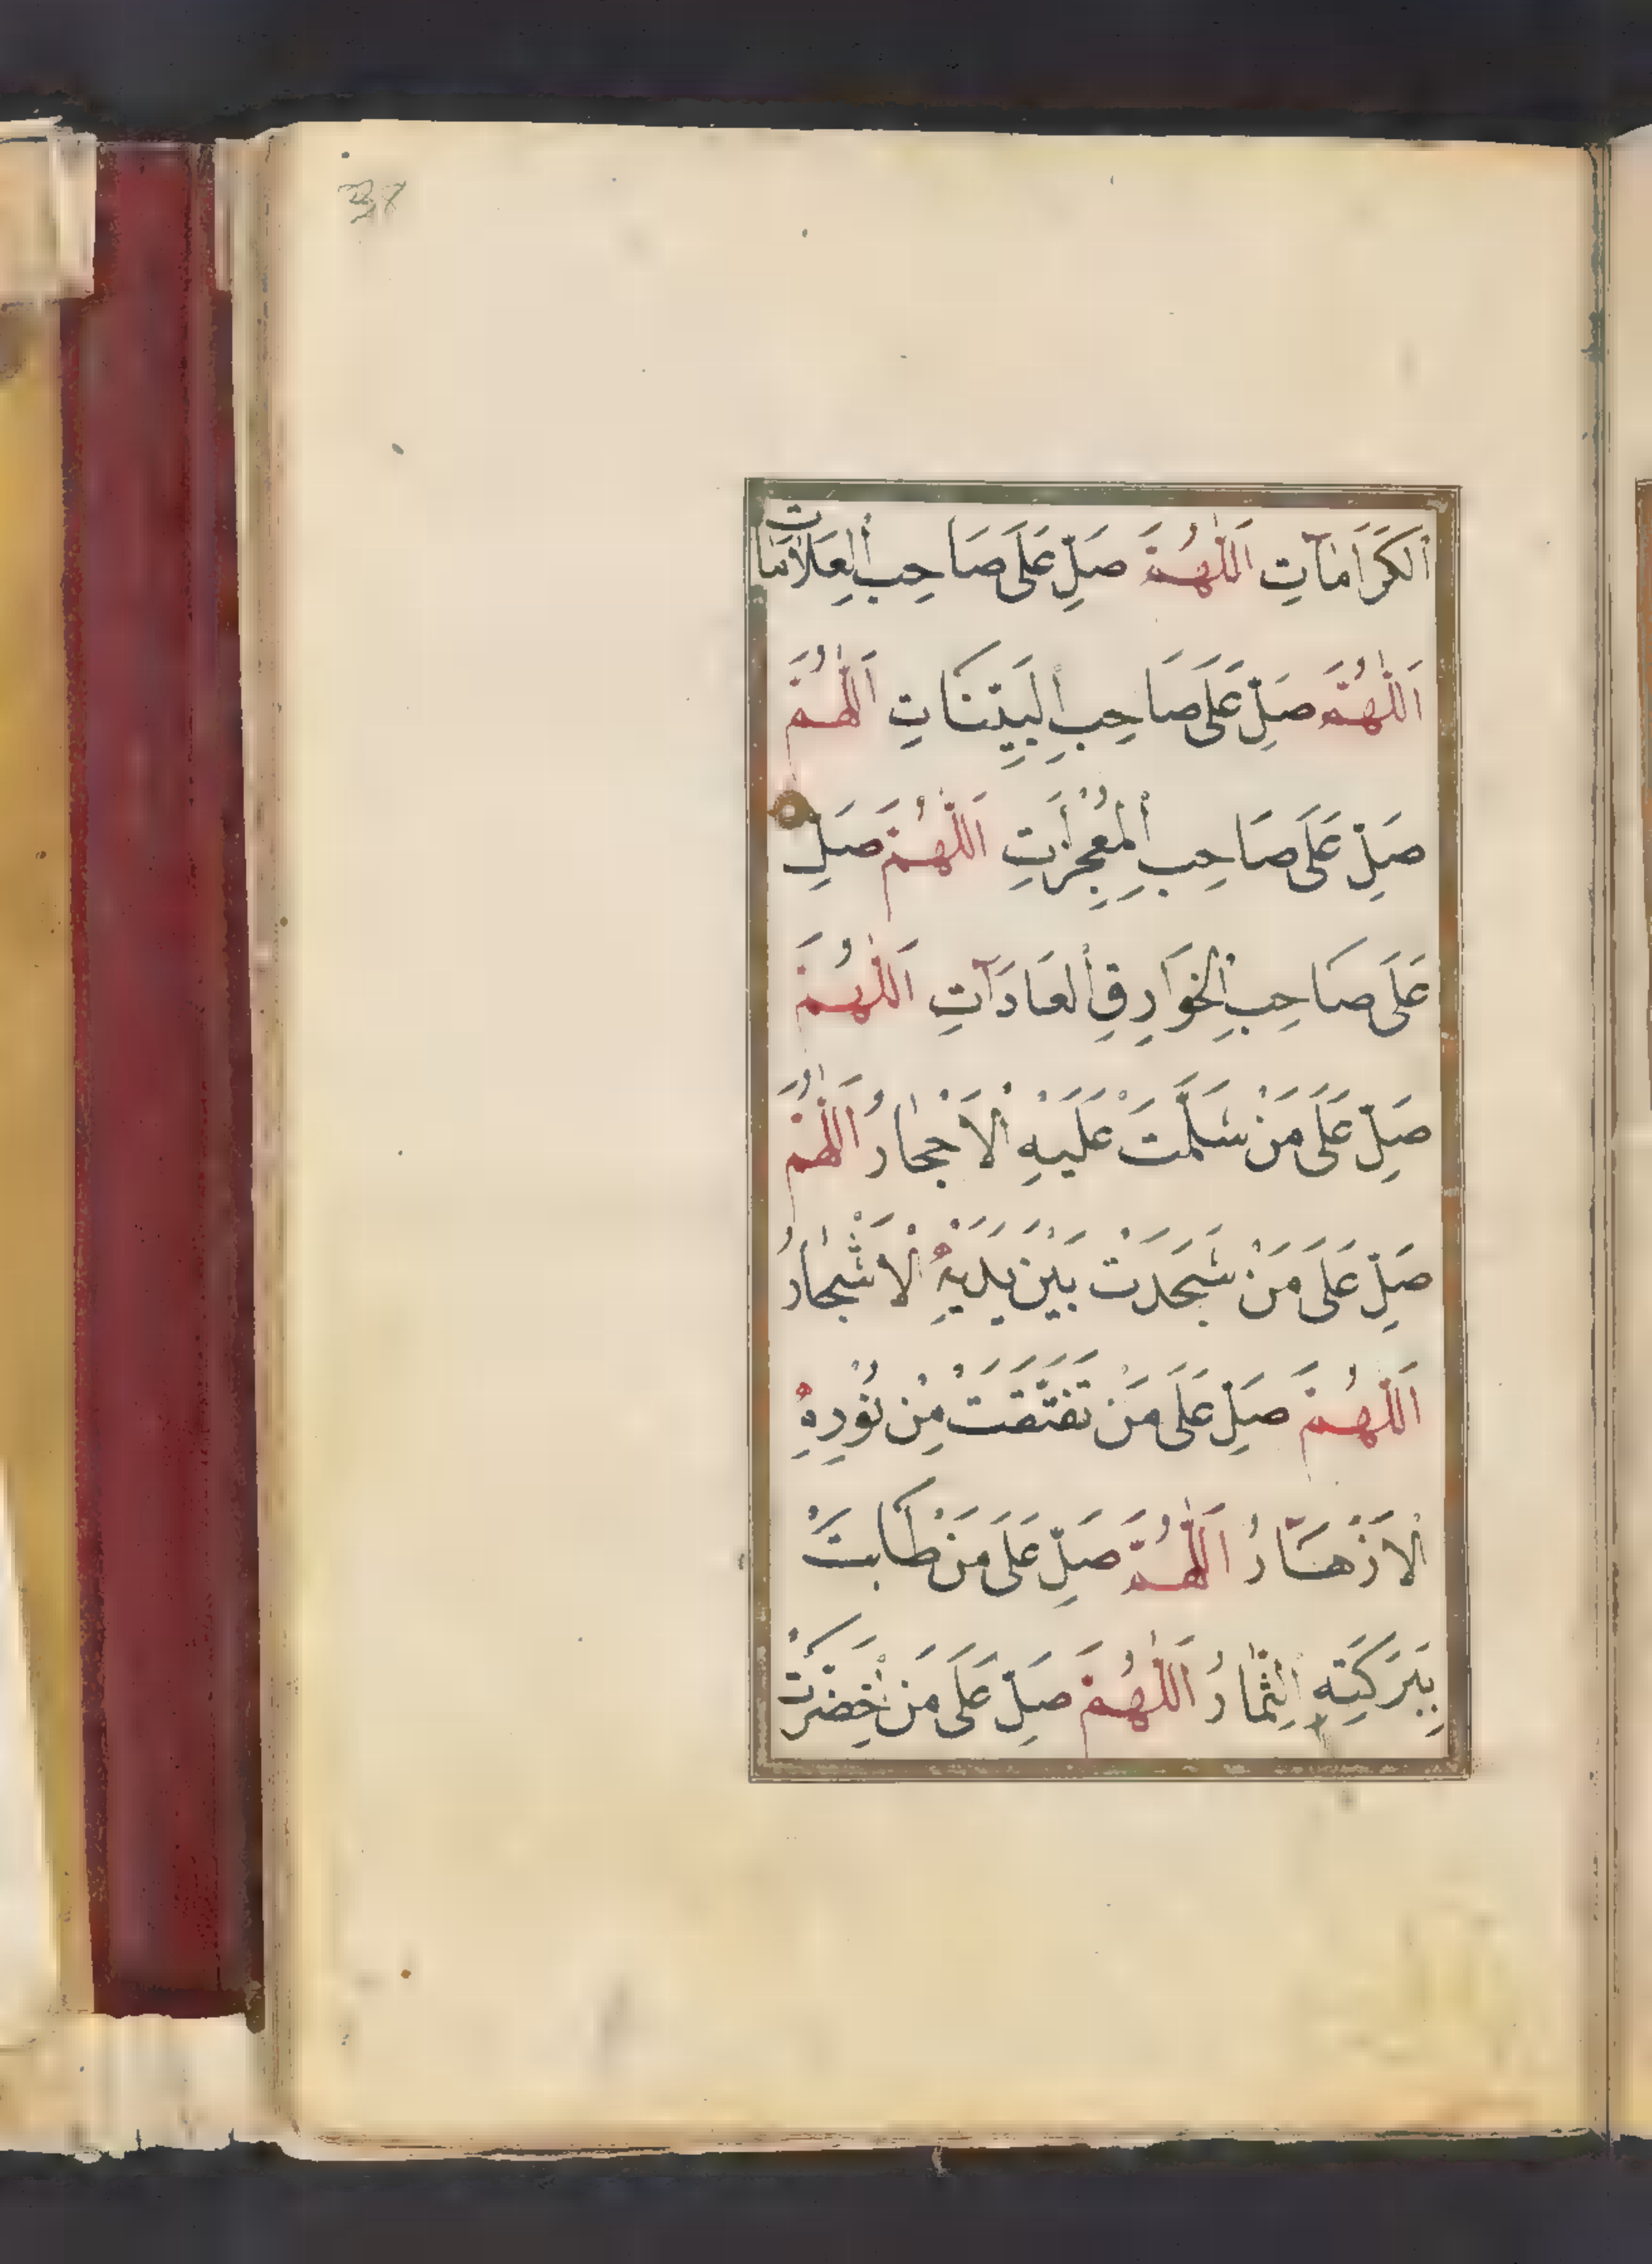 اَلْكَرَامَاتِ اَللّٰهُمَّ صَلِّ عَلَى صَاحِبِ الْعَلَامَاتِ
اَللّٰهُمَّ صَلِّ عَلَى صَاحِبِ الْبَيِّنَاتِ اَللّٰهُمَّ
صَلِّ عَلَى صَاحِبِ الْمُعْجِزَاتِ اَللّٰهُمَّ صَلِّ
عَلَى صَاحِبِ الْخَوَارِقِ الْعَادَاتِ اَللّٰهُمَّ
صَلِّ عَلَى مَنْ سَلَّمَتْ عَلَيْهِ الْاَحْجَارُ اَللّٰهُمَّ
صَلِّ عَلَى مَنْ سَجَدَتْ بَيْنَ يَدَيْهِ الْاَشْجَارُ
اَللّٰهُمَّ صَلِّ عَلَى مَنْ تَفَتَّقَتْ مِنْ نُوْرِهِ
الْاَزْهَارُ اَللّٰهُمَّ صَلِّ عَلَى مَنْ طَابَتْ
بِبَرَكَتِهِ الثِّمَارُ اَللّٰهُمَّ صَلِّ عَلَى مَنْ اخْضَرَّتْ